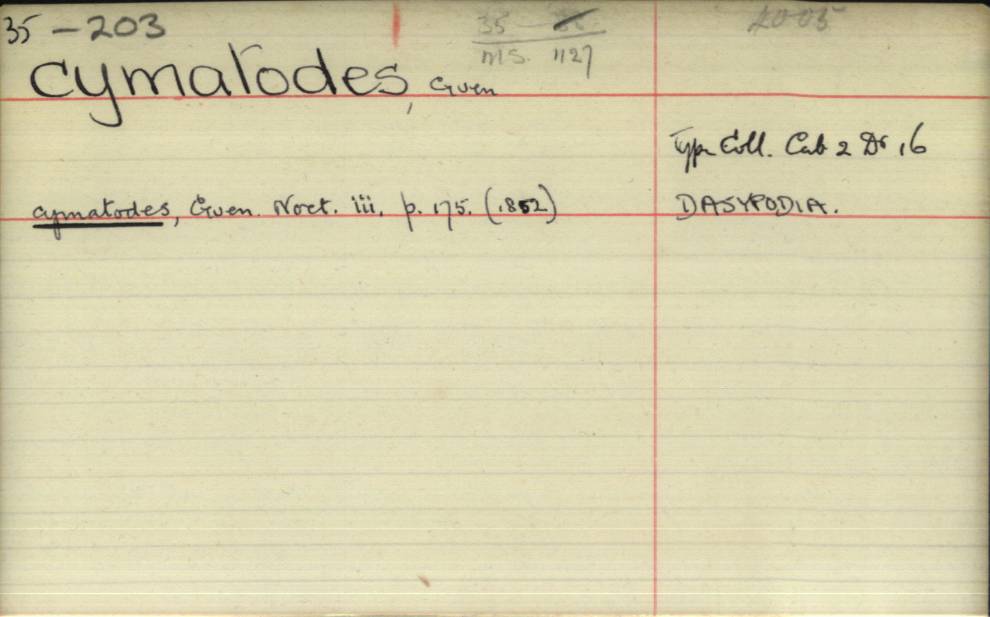 35 - 203
35
MS. 1127
2005
cymatodes, Guen
Type Coll. Cab 2 Dr 16
cymatodes, Guen. Noct. iii, p. 175. (1852)
DASYPODIA.